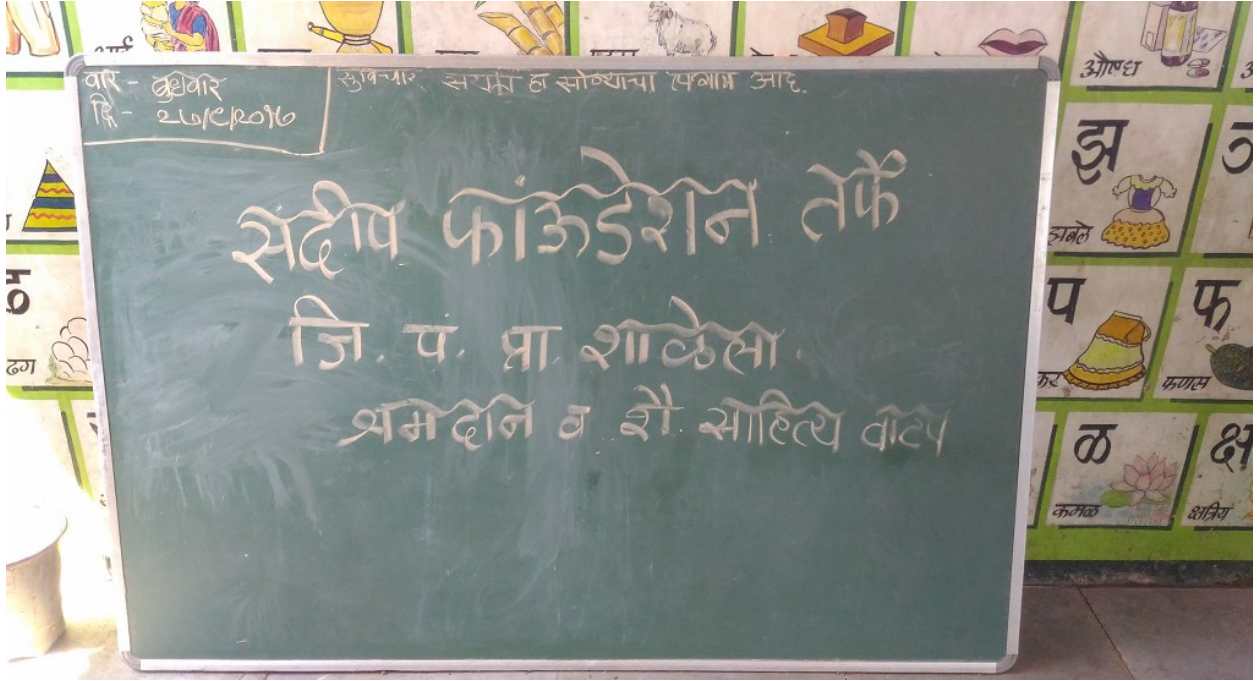 वार - बुधवार
दि - २७/९/२०१७
सुविचार हा सोन्याचा आहे.
संदीप फांऊडेशन तर्फे
जि. प. प्रा. शाळेला.
श्रमदान व शै. साहित्य वाटप
आई
औषध
झ
झबले
प
फ
फणस
ढग
ळ
कमळ
क्ष
क्षत्रिय